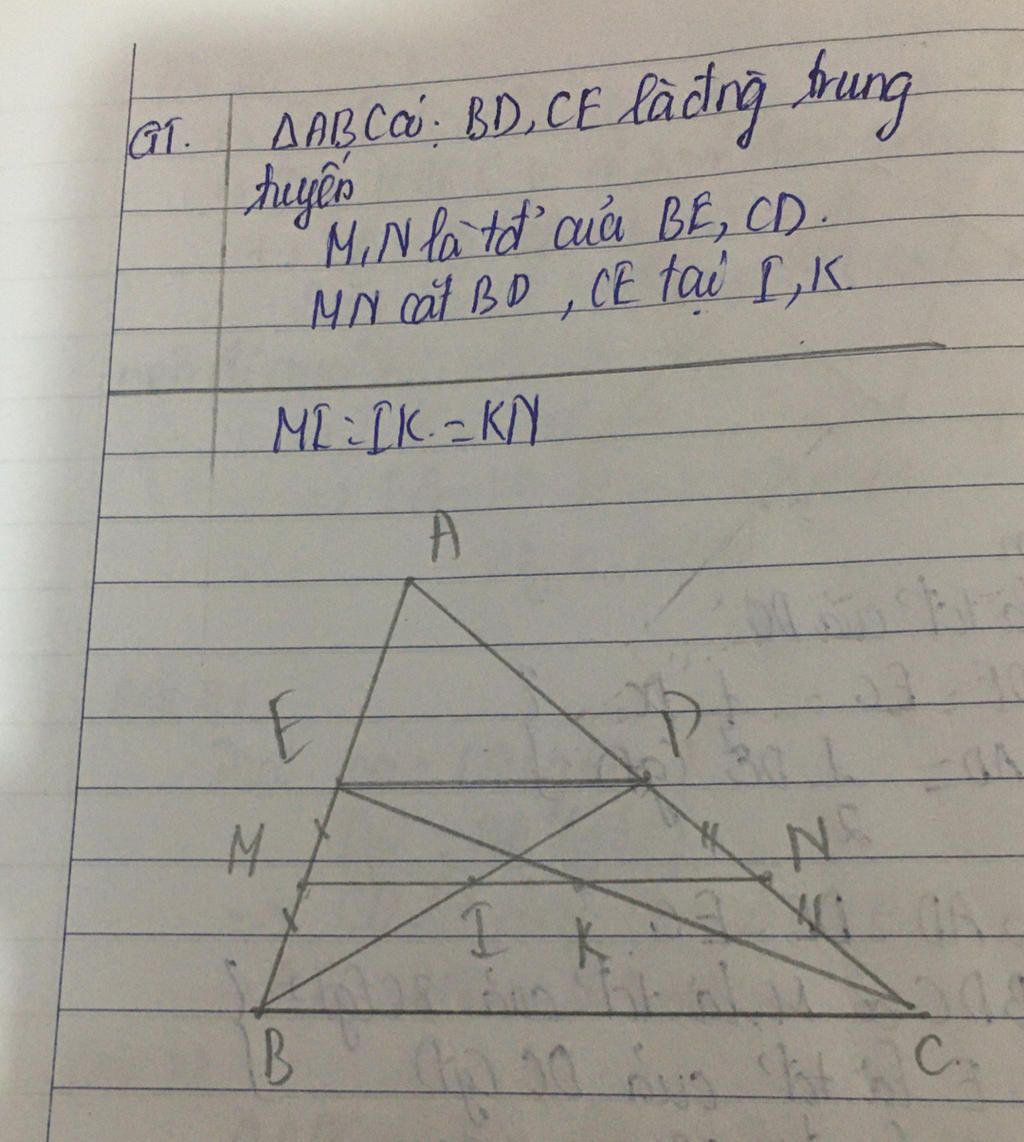 GT. ΔABC có: BD, CE là đng trung
tuyến
M, N là tđ' của BE, CD.
MN cắt BD, CE tại I, K.
MI = IK. = KN
A
E
D
M
N
I
K
B
C.